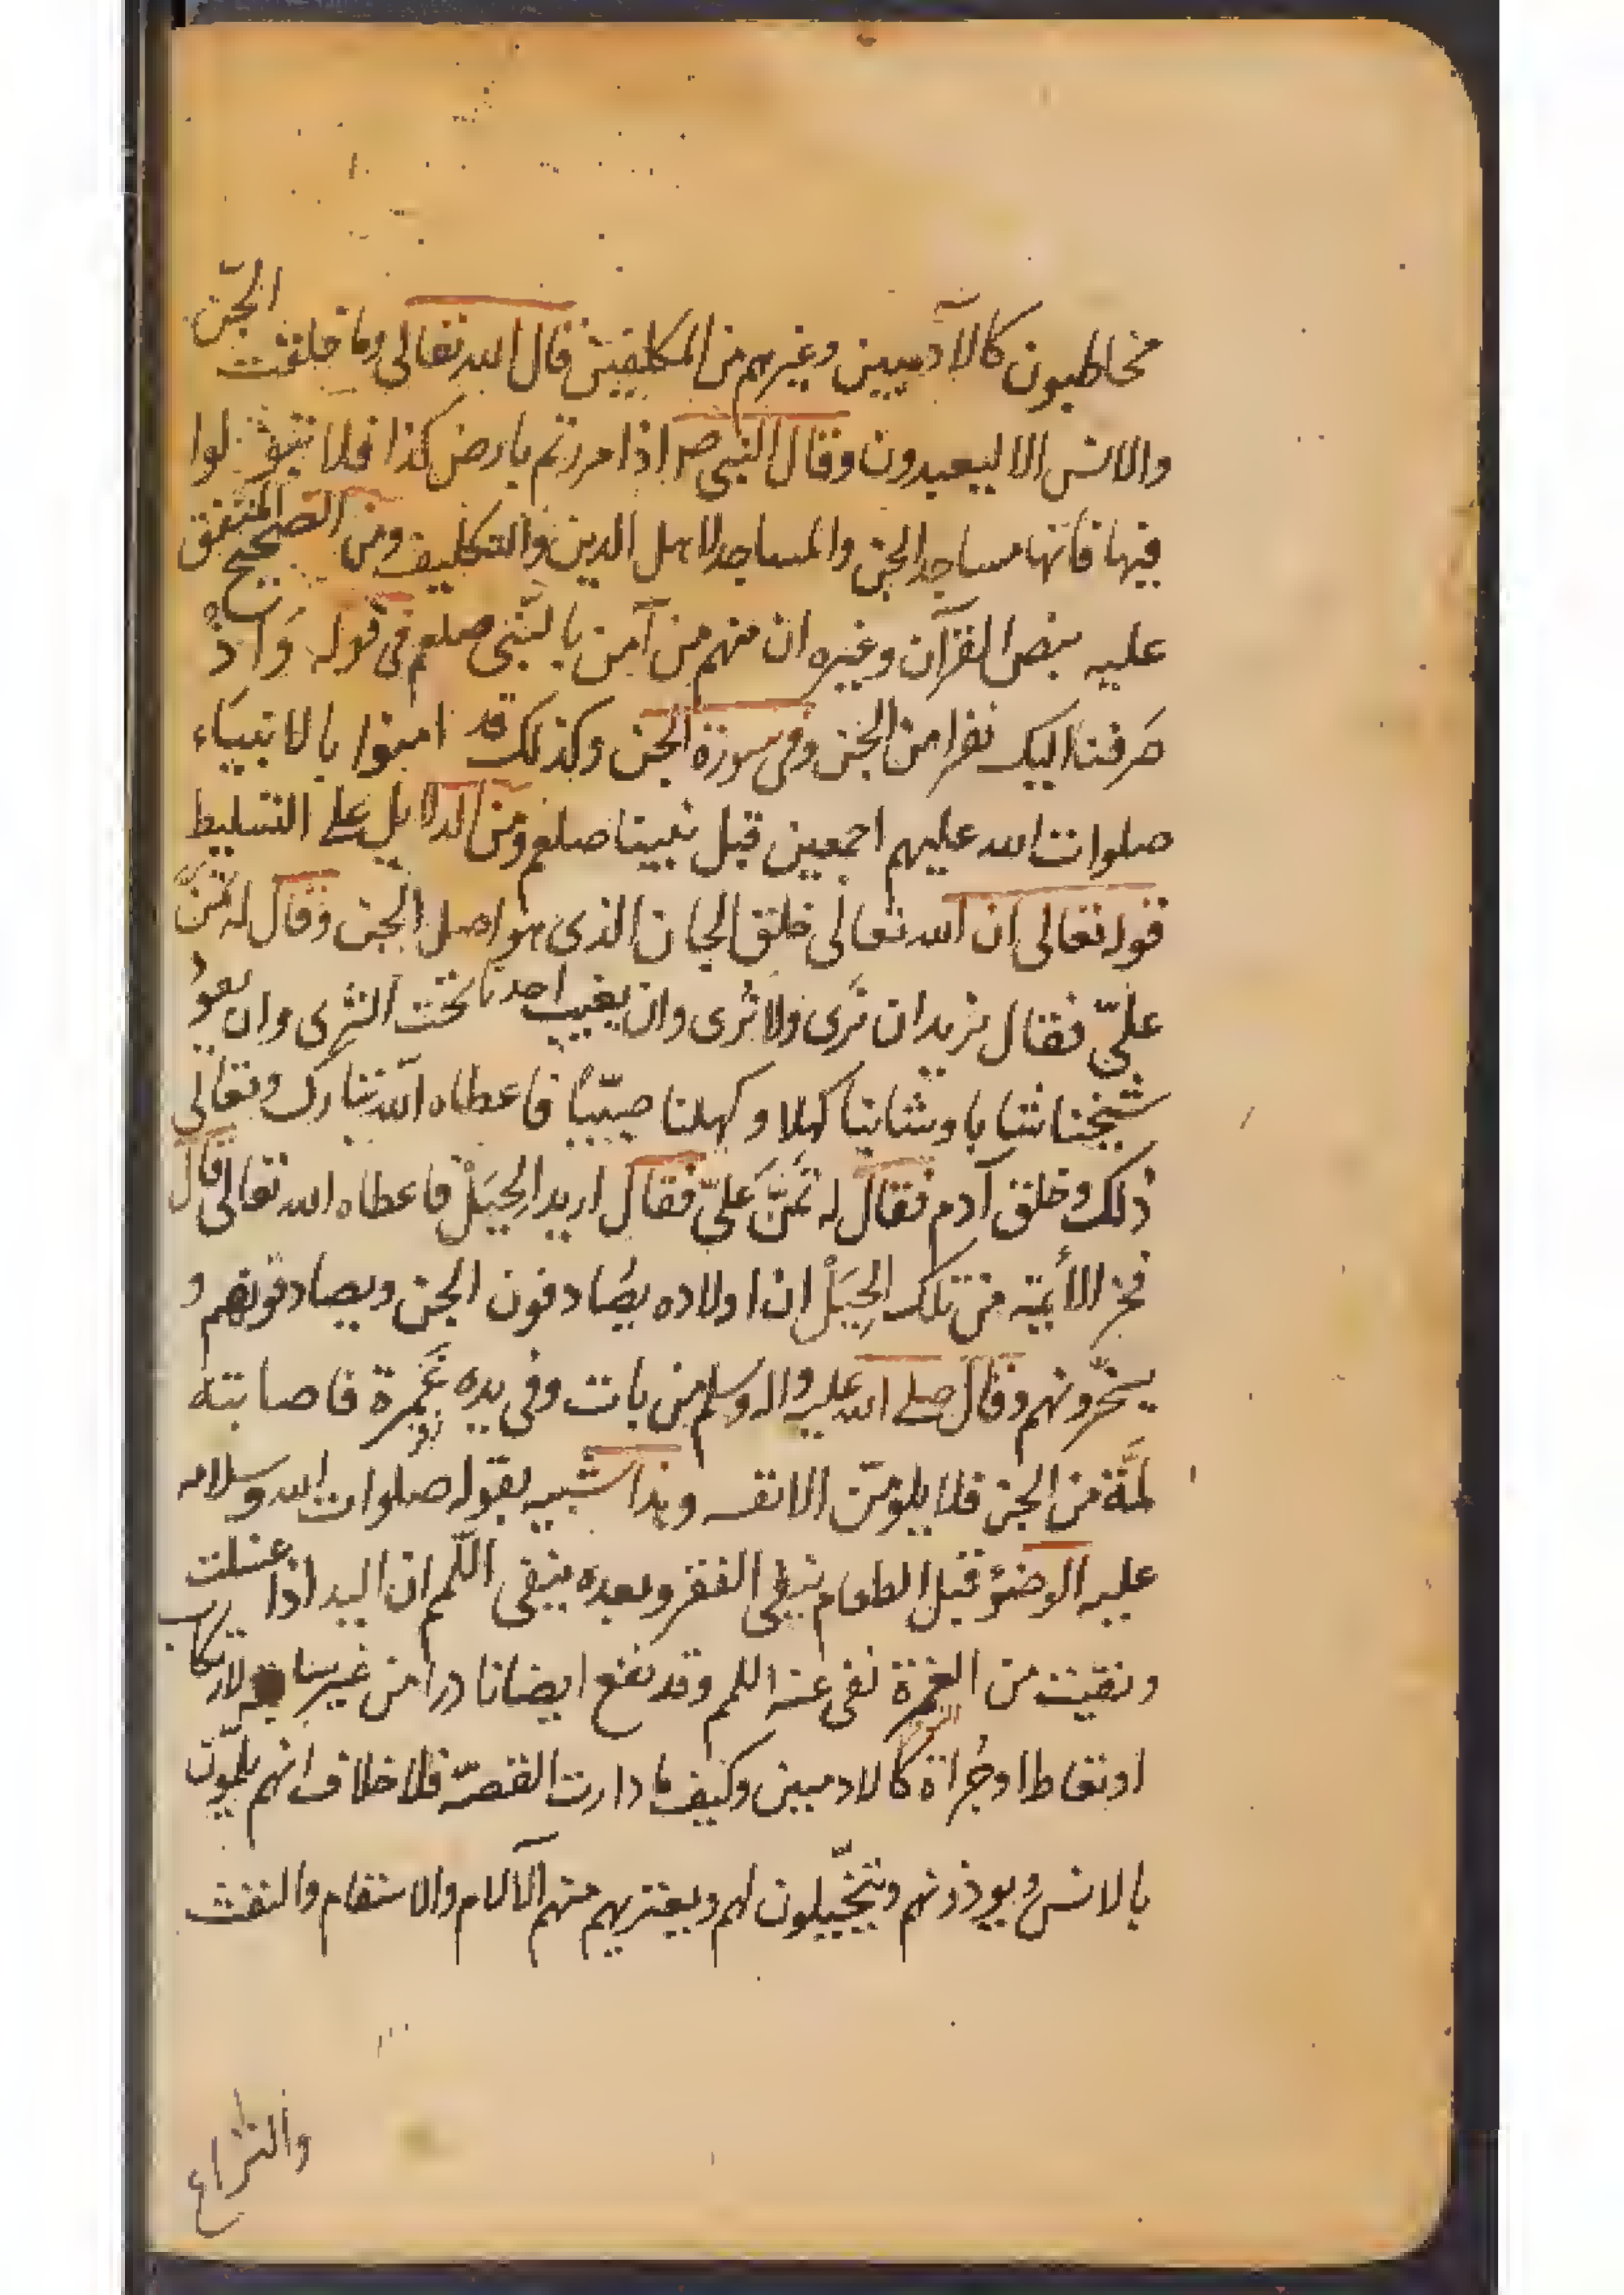 مخاطبون كالآدميين وغيرهم من المكلفين قال الله تعالى وما خلقت الجنّ
والانس الا ليعبدون وقال النبي ص اذا مررتم بارض كذا فلا تتغولوا
فيها فانها مساجد الجن والمساجد لاهل الدين والتكليف ومن الصحيح المتفق
عليه بنص القرآن وغيره ان منهم من آمن بالنّبى صلعم فى قوله وَاذْ
صَرفنا اليك نفرا من الجن وفى سورة الجن وكذلك قد امنوا بالانبياء
صلوات الله عليهم اجمعين قبل نبينا صلعم ومن الدلايل على التسليط
قوله تعالى ان الله تعالى خلق الجان الذى هو اصل الجن وقال له تمنَّ
عليّ فقال نريد ان نَرى ولا نُرى وان يغيب احدنا تحت الثرى وان يعودُ
شيخنا شابا وشابنا كهلا وكهلنا صبيّاً فاعطاه الله تبارك وتعالى
ذلك وخلق آدم فقال له تمَنَّ عَليّ فقال اريد الحِيَلْ فاعطاه الله تعالى قال
فخر الأئمة فمن تلك الحِيَلْ ان اولاده يصُادفون الجن ويصادقونهم و
يسخّرونهم وقال صلى الله عليه واله وسلم من بات وفى يده غَمِرة فاصابته
لمَّة من الجن فلا يلومنّ الا نفسه وهذا شبيه بقوله صلوات الله وسلامه
عليه الوضؤ قبل الطعام ينفى الفقر وبعده ينفى اللّمم ان اليد اذا غسلت
ونقيت من الغمرة نفى عنه اللمم وقد تقع ايضا نادرا من غير سابقه لارتكاب
او تعاط او جُراة كالادميين وكيف ما دارت القصّه فلا خلاف انهم يلمّون
بالانس ويوذونهم ويتخيّلون لهم ويعتريهم منهم الآلام والاسقام والنفث
والنزاع